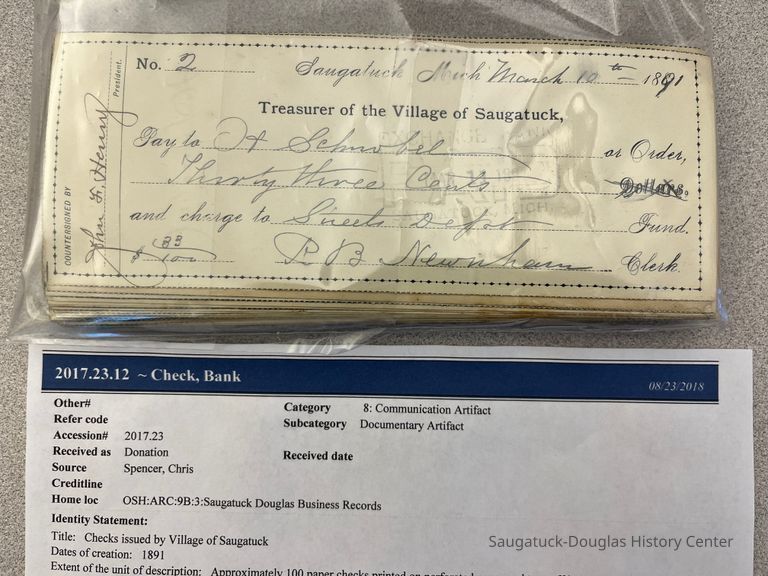 No. 2 Saugatuck Mich March 10th 1891
Treasurer of the Village of Saugatuck,
Pay to Schnobel or Order,
Thirty three Cents Dollars.
and charge to Fund.
$ 33/100 R B Newnham Clerk.
COUNTERSIGNED BY John F. Henry President.
2017.23.12 ~ Check, Bank 08/23/2018
Other# Category 8: Communication Artifact
Refer code Subcategory Documentary Artifact
Accession# 2017.23
Received as Donation Received date
Source Spencer, Chris
Creditline
Home loc OSH:ARC:9B:3:Saugatuck Douglas Business Records
Identity Statement:
Title: Checks issued by Village of Saugatuck
Dates of creation: 1891
Extent of the unit of description: Approximately 100 paper checks printed on
Saugatuck-Douglas History Center